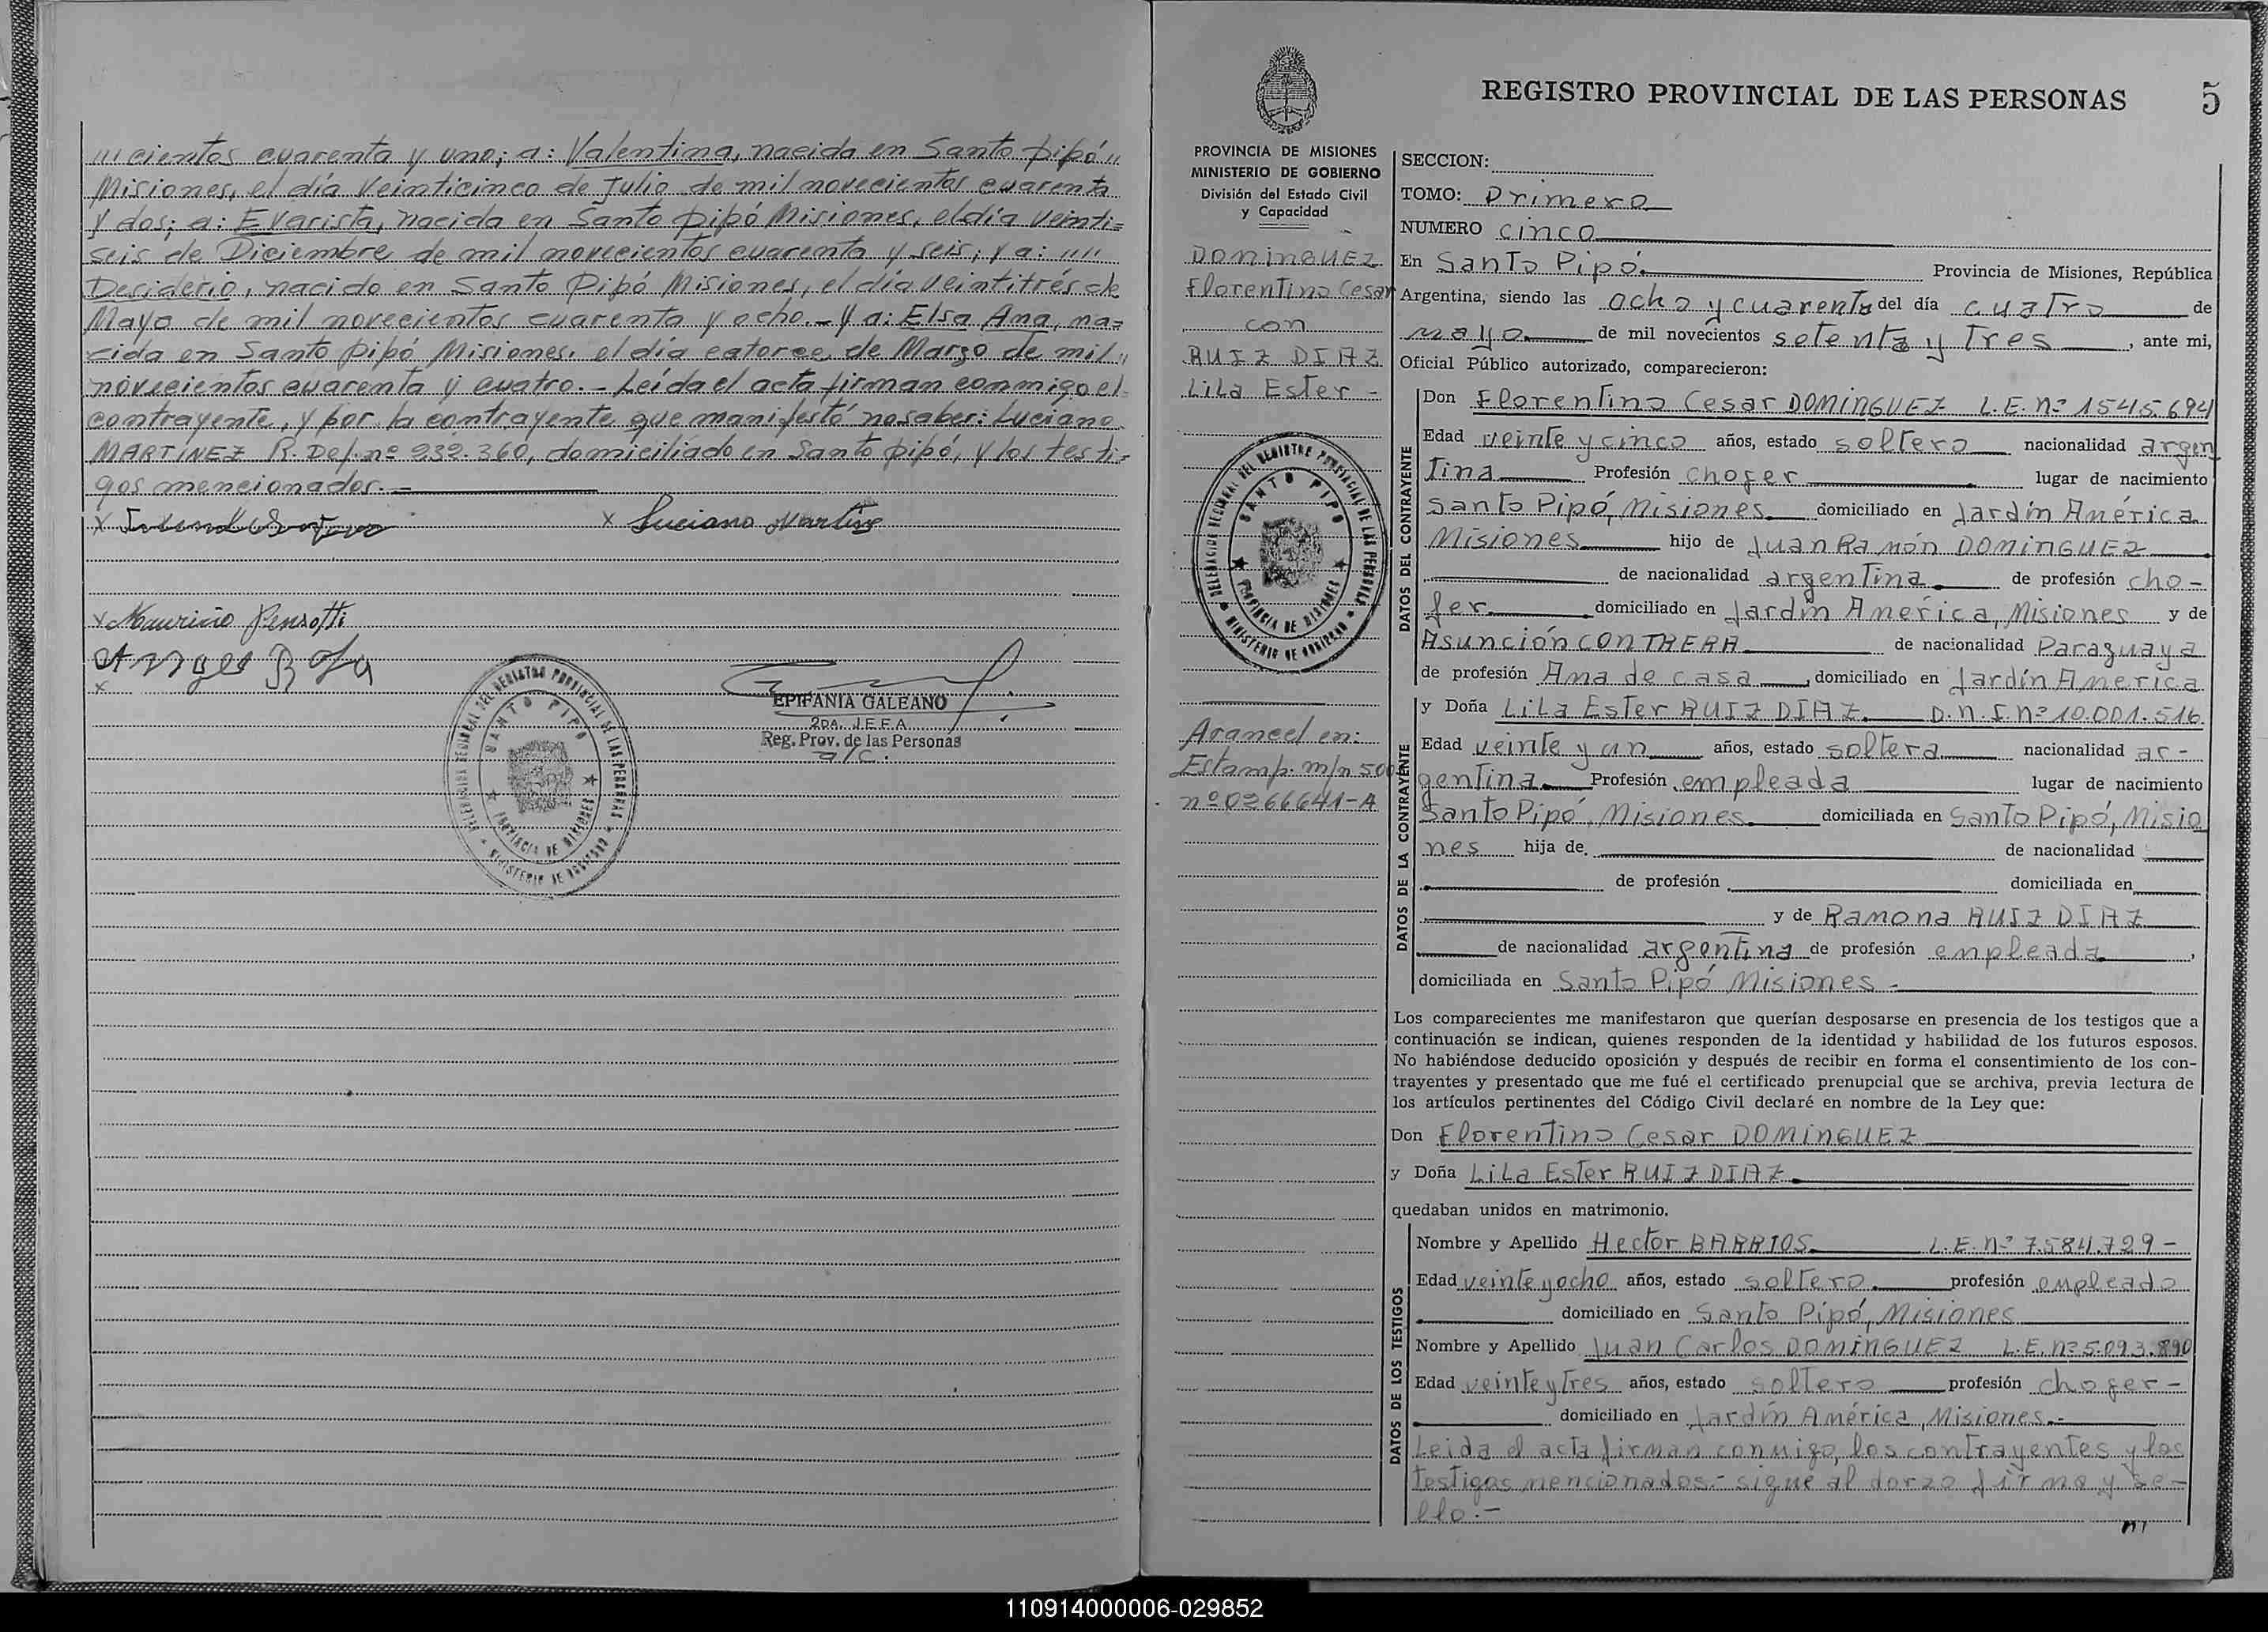 "" cientos cuarenta y uno; a: Valentina, nacida en Santo Pipó "
Misiones, el día Veinticinco de Julio de mil novecientos cuarenta
y dos; a: Evarista, nacida en Santo Pipó Misiones, el día Veinti=
seis de Diciembre de mil novecientos cuarenta y seis; y a: """
Desiderio, nacido en Santo Pipó Misiones, el día veintitrés de
Mayo de mil novecientos cuarenta y ocho.- Y a: Elsa Ana, na=
cida en Santo Pipó Misiones, el día catorce de Marzo de mil "
novecientos cuarenta y cuatro.- Leída el acta firman conmigo el
contrayente, y por la contrayente que manifestó no saber: Luciano
MARTINEZ R. Def. nº 232.360, domiciliado en Santo Pipó, y los testi=
gos mencionados.-
x x Luciano
x Mauricio Pensotti
x
EPIFANIA GALEANO
2DA. J.E.F.A.
Reg. Prov. de las Personas
a/c.
DELEGACION SECCIONAL DEL REGISTRO PROVINCIAL DE LAS PERSONAS
SANTO PIPO
PROVINCIA DE MISIONES
MINISTERIO DE GOBIERNO
REGISTRO PROVINCIAL DE LAS PERSONAS 5
PROVINCIA DE MISIONES
MINISTERIO DE GOBIERNO
División del Estado Civil
y Capacidad
DOMINGUEZ
Florentino Cesar
con
RUIZ DIAZ
Lila Ester -
DELEGACION SECCIONAL DEL REGISTRO PROVINCIAL DE LAS PERSONAS
SANTO PIPO
PROVINCIA DE MISIONES
MINISTERIO DE GOBIERNO
Arancel en:
Estamp. m/n 500
nº 0266641-A
SECCION:
TOMO: Primero
NUMERO cinco
En Santo Pipó Provincia de Misiones, República
Argentina, siendo las ocho y cuarenta del día cuatro de
mayo de mil novecientos setenta y tres, ante mi,
Oficial Público autorizado, comparecieron:
DATOS DEL CONTRAYENTE
Don Florentino Cesar DOMINGUEZ L.E. nº 1545.694
Edad veinte y cinco años, estado soltero nacionalidad argen
tina Profesión chofer lugar de nacimiento
Santo Pipó, Misiones domiciliado en Jardín América
Misiones hijo de Juan Ramón DOMINGUEZ
de nacionalidad argentina de profesión cho-
fer domiciliado en Jardín América, Misiones y de
Asunción CONTRERA de nacionalidad Paraguaya
de profesión Ama de casa, domiciliado en Jardín America
DATOS DE LA CONTRAYENTE
y Doña Lila Ester RUIZ DIAZ D.N.I. nº 10.001.516
Edad veinte y un años, estado soltera nacionalidad ar-
gentina Profesión empleada lugar de nacimiento
Santo Pipó, Misiones domiciliada en Santo Pipó, Misio
nes hija de de nacionalidad
de profesión domiciliada en
y de Ramona RUIZ DIAZ
de nacionalidad argentina de profesión empleada,
domiciliada en Santo Pipó Misiones -
Los comparecientes me manifestaron que querían desposarse en presencia de los testigos que a
continuación se indican, quienes responden de la identidad y habilidad de los futuros esposos.
No habiéndose deducido oposición y después de recibir en forma el consentimiento de los con-
trayentes y presentado que me fué el certificado prenupcial que se archiva, previa lectura de
los artículos pertinentes del Código Civil declaré en nombre de la Ley que:
Don Florentino Cesar DOMINGUEZ
y Doña Lila Ester RUIZ DIAZ
quedaban unidos en matrimonio.
DATOS DE LOS TESTIGOS
Nombre y Apellido Hector BARRIOS L.E. nº 7.584.729-
Edad veinte y ocho años, estado soltero profesión empleado
domiciliado en Santo Pipó, Misiones
Nombre y Apellido Juan Carlos DOMINGUEZ L.E. nº 5.093.890
Edad veinte y tres años, estado soltero profesión chofer-
domiciliado en Jardín América, Misiones.-
Leida el acta firman conmigo, los contrayentes y los
testigos mencionados.- sigue al dorzo firma y se-
llo.-
110914000006-029852